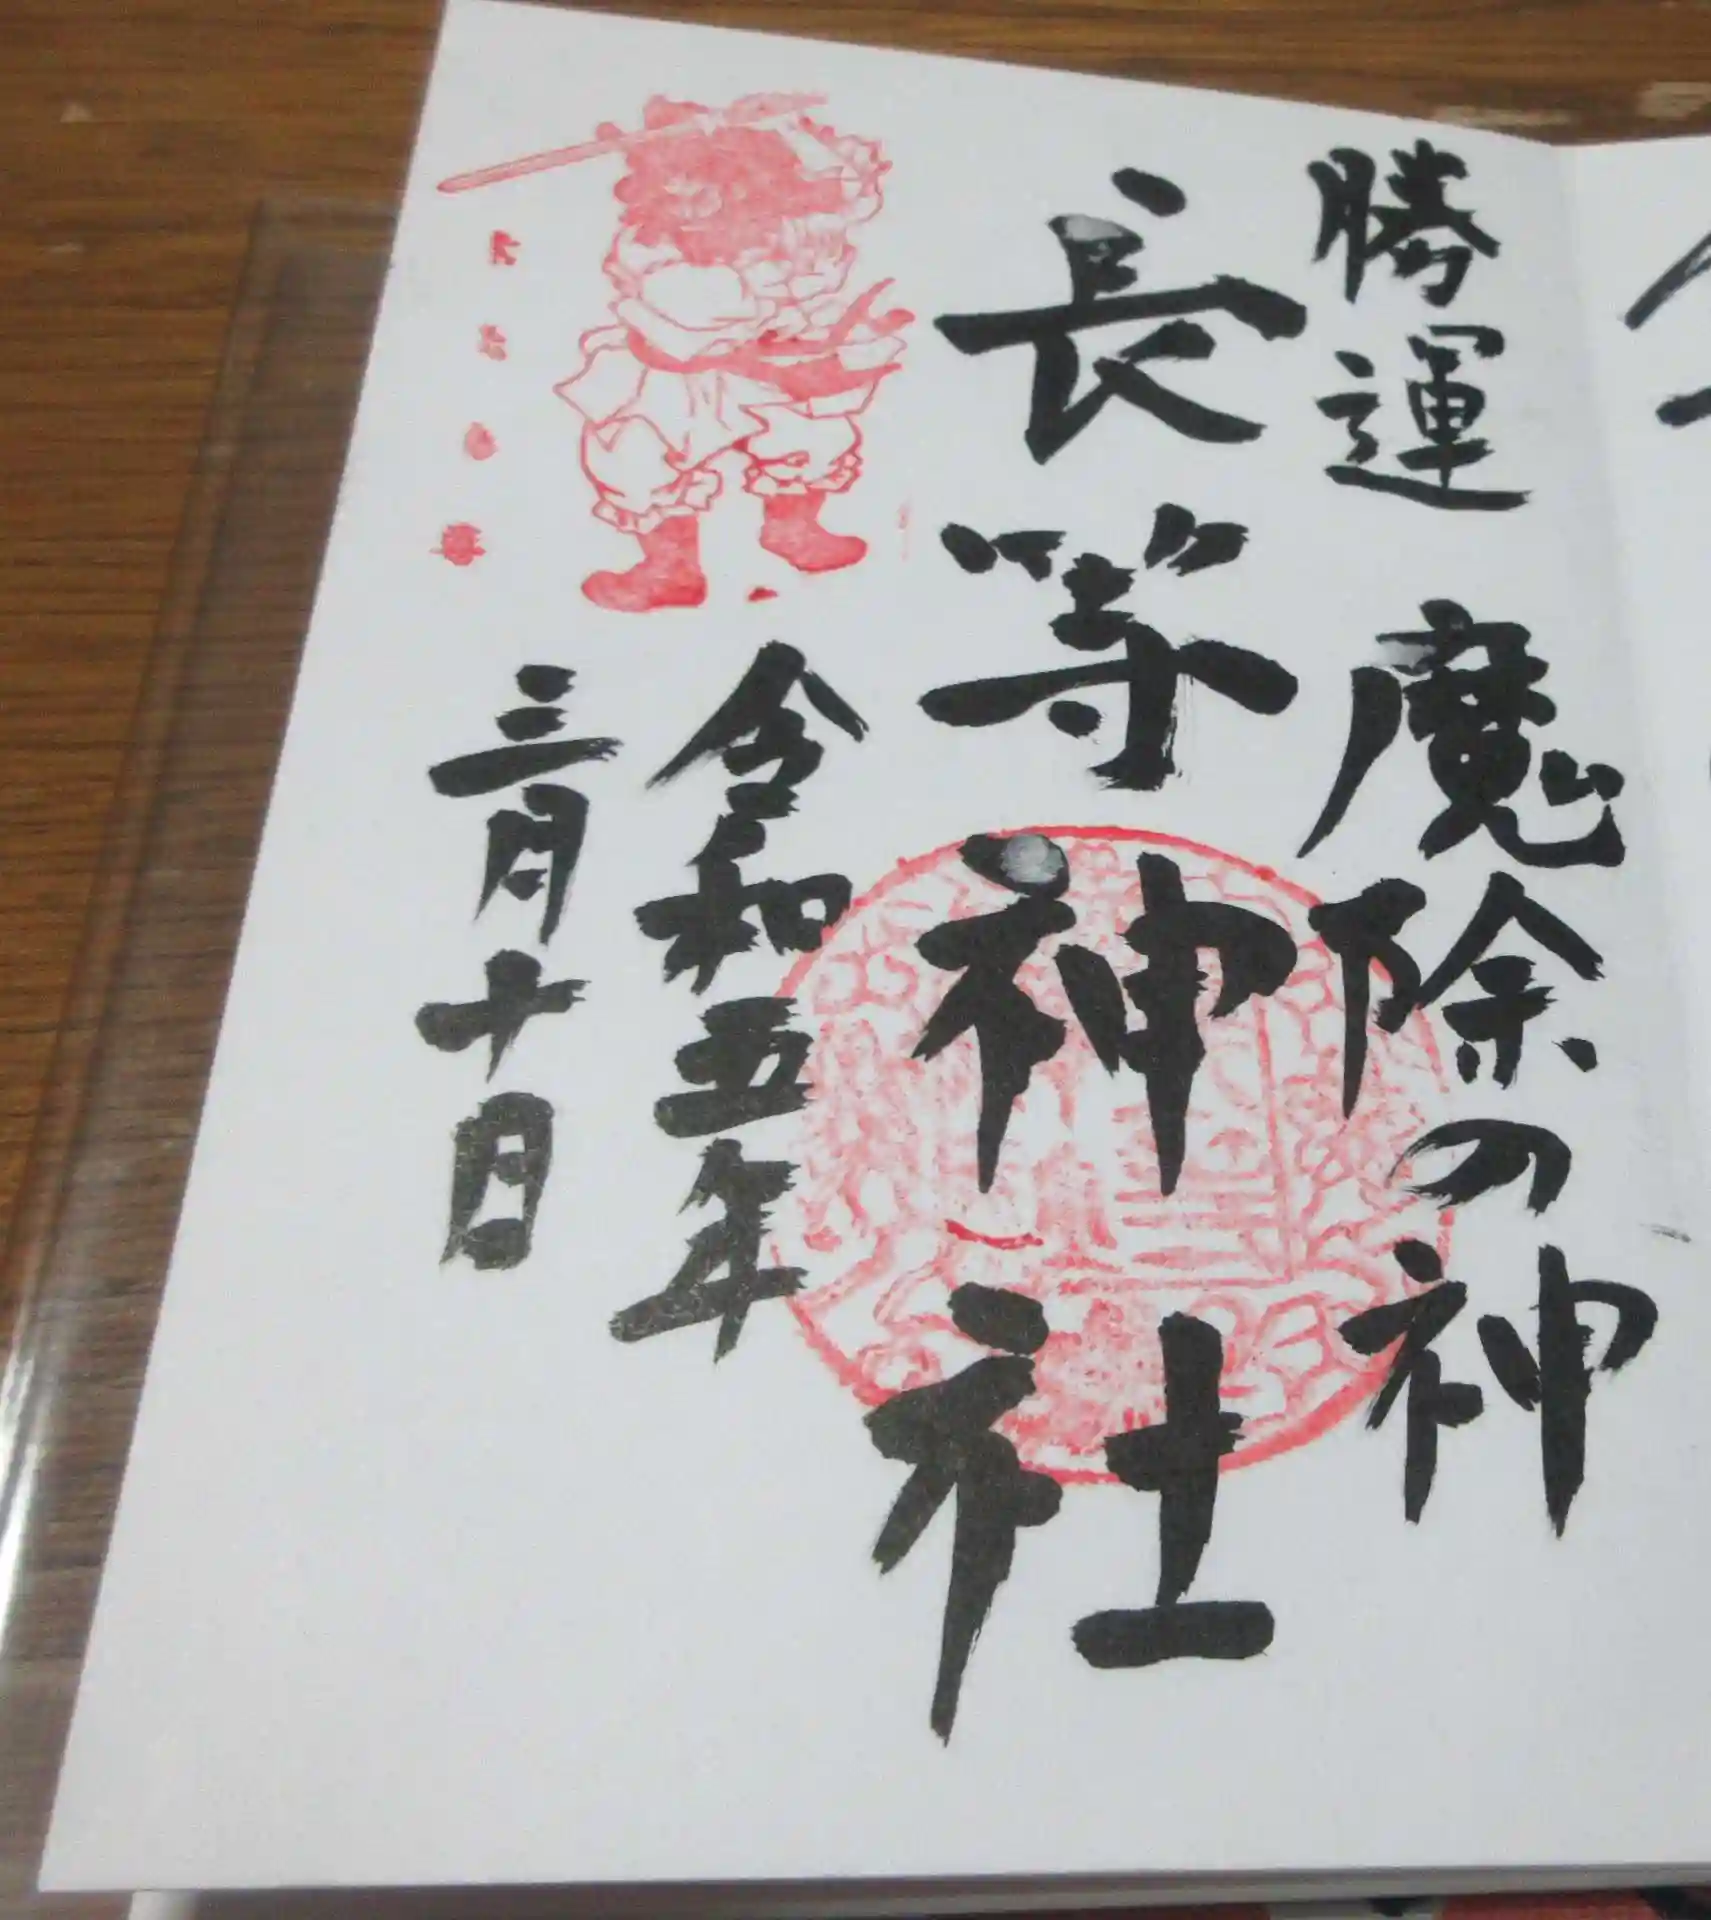 勝運 魔除の神
長等神社
令和五年
三月十日